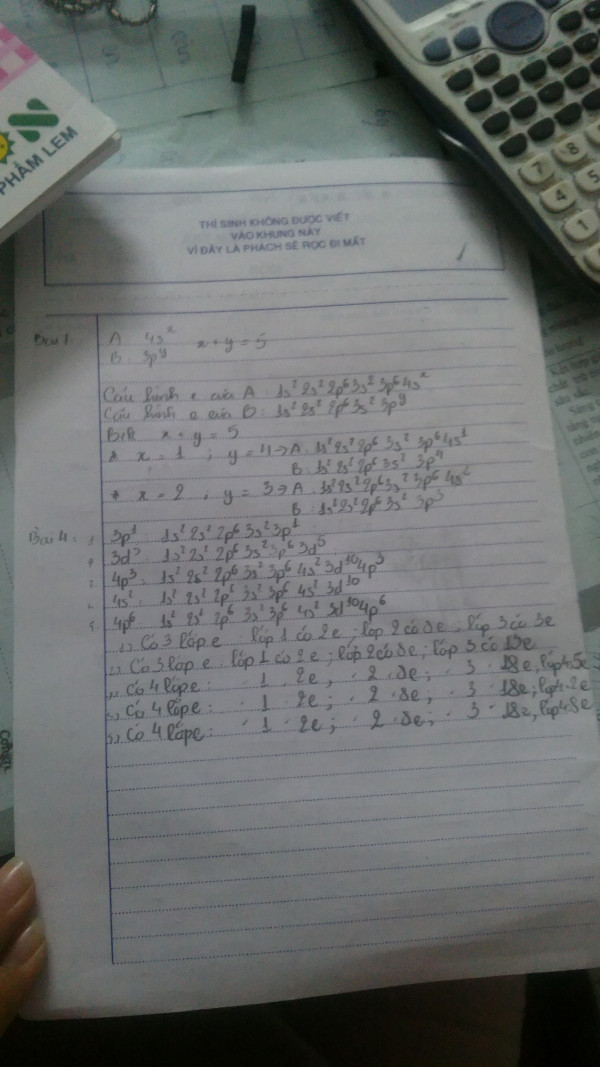 PHẨM LEM
7
8
4
5
1
THÍ SINH KHÔNG ĐƯỢC VIẾT
VÀO KHUNG NÀY
VÌ ĐÂY LÀ PHÁCH SẼ RỌC ĐI MẤT
Bài 1 A 4sˣ x + y = 5
B: 3pʸ
Cấu hình e của A: 1s² 2s² 2p⁶ 3s² 3p⁶ 4sˣ
Cấu hình e của B: 1s² 2s² 2p⁶ 3s² 3pʸ
Biết x + y = 5
* x = 1 ; y = 4 → A: 1s² 2s² 2p⁶ 3s² 3p⁶ 4s¹
B: 1s² 2s² 2p⁶ 3s² 3p⁴
* x = 2 , y = 3 → A: 1s² 2s² 2p⁶ 3s² 3p⁶ 4s²
B: 1s² 2s² 2p⁶ 3s² 3p³
Bài 4: 1 3p¹: 1s² 2s² 2p⁶ 3s² 3p¹
3d⁵: 1s² 2s² 2p⁶ 3s² 3p⁶ 3d⁵
4p³: 1s² 2s² 2p⁶ 3s² 3p⁶ 4s² 3d¹⁰ 4p³
4s²: 1s² 2s² 2p⁶ 3s² 3p⁶ 4s² 3d¹⁰
5. 4p⁶ 1s² 2s² 2p⁶ 3s² 3p⁶ 4s² 3d¹⁰ 4p⁶
1, Có 3 lớp e lớp 1 có 2e ; lớp 2 có 8e ; lớp 3 có 3e
Có 3 lớp e lớp 1 có 2e ; lớp 2 có 8e ; lớp 3 có 13e
Có 4 lớp e: 1 2e ; 2 8e ; 3 18e, lớp 4 5e
Có 4 lớp e: 1 2e ; 2 8e ; 3 18e ; lớp 4 2e
5, Có 4 lớp e: 1 2e ; 2 8e ; 3 18e, lớp 4 8e